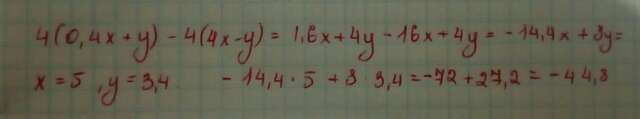 4(0,4x+y) - 4(4x-y) = 1,6x+4y-16x+4y = -14,4x + 8y=
x = 5 , y = 3,4 - 14,4 · 5 + 8 · 3,4 = -72 + 27,2 = -44,8